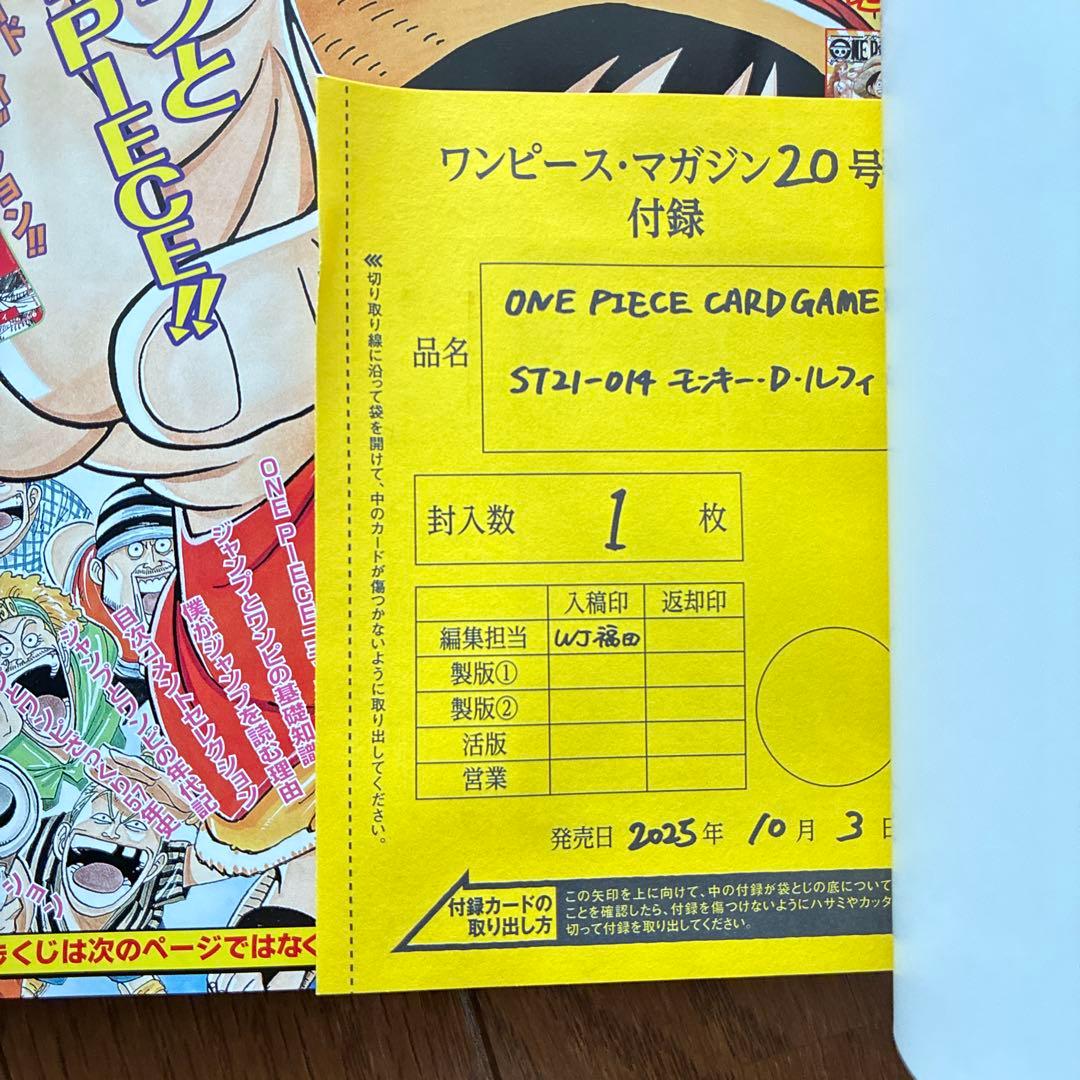 プと
PIECE!!
ワンピース・マガジン20号
付録
品名
ONE PIECE CARD GAME
ST21-014 モンキー・D・ルフィ
封入数 1 枚
入稿印 返却印
編集担当 WJ福田
製版①
製版②
活版
営業
発売日 2025年 10月 3日
付録カードの
取り出し方
この矢印を上に向けて、中の付録が袋とじの底について
ことを確認したら、付録を傷つけないようにハサミやカッタ
切って付録を取り出してください。
切り取り線に沿って袋を開けて、中のカードが傷つかないように取り出してください。
ONE PIECE
ジャンプとワンピの基礎知識
僕がジャンプを読む理由
目次コメントセレクション
ジャンプとワンピの年代記
くじは次のページではなく